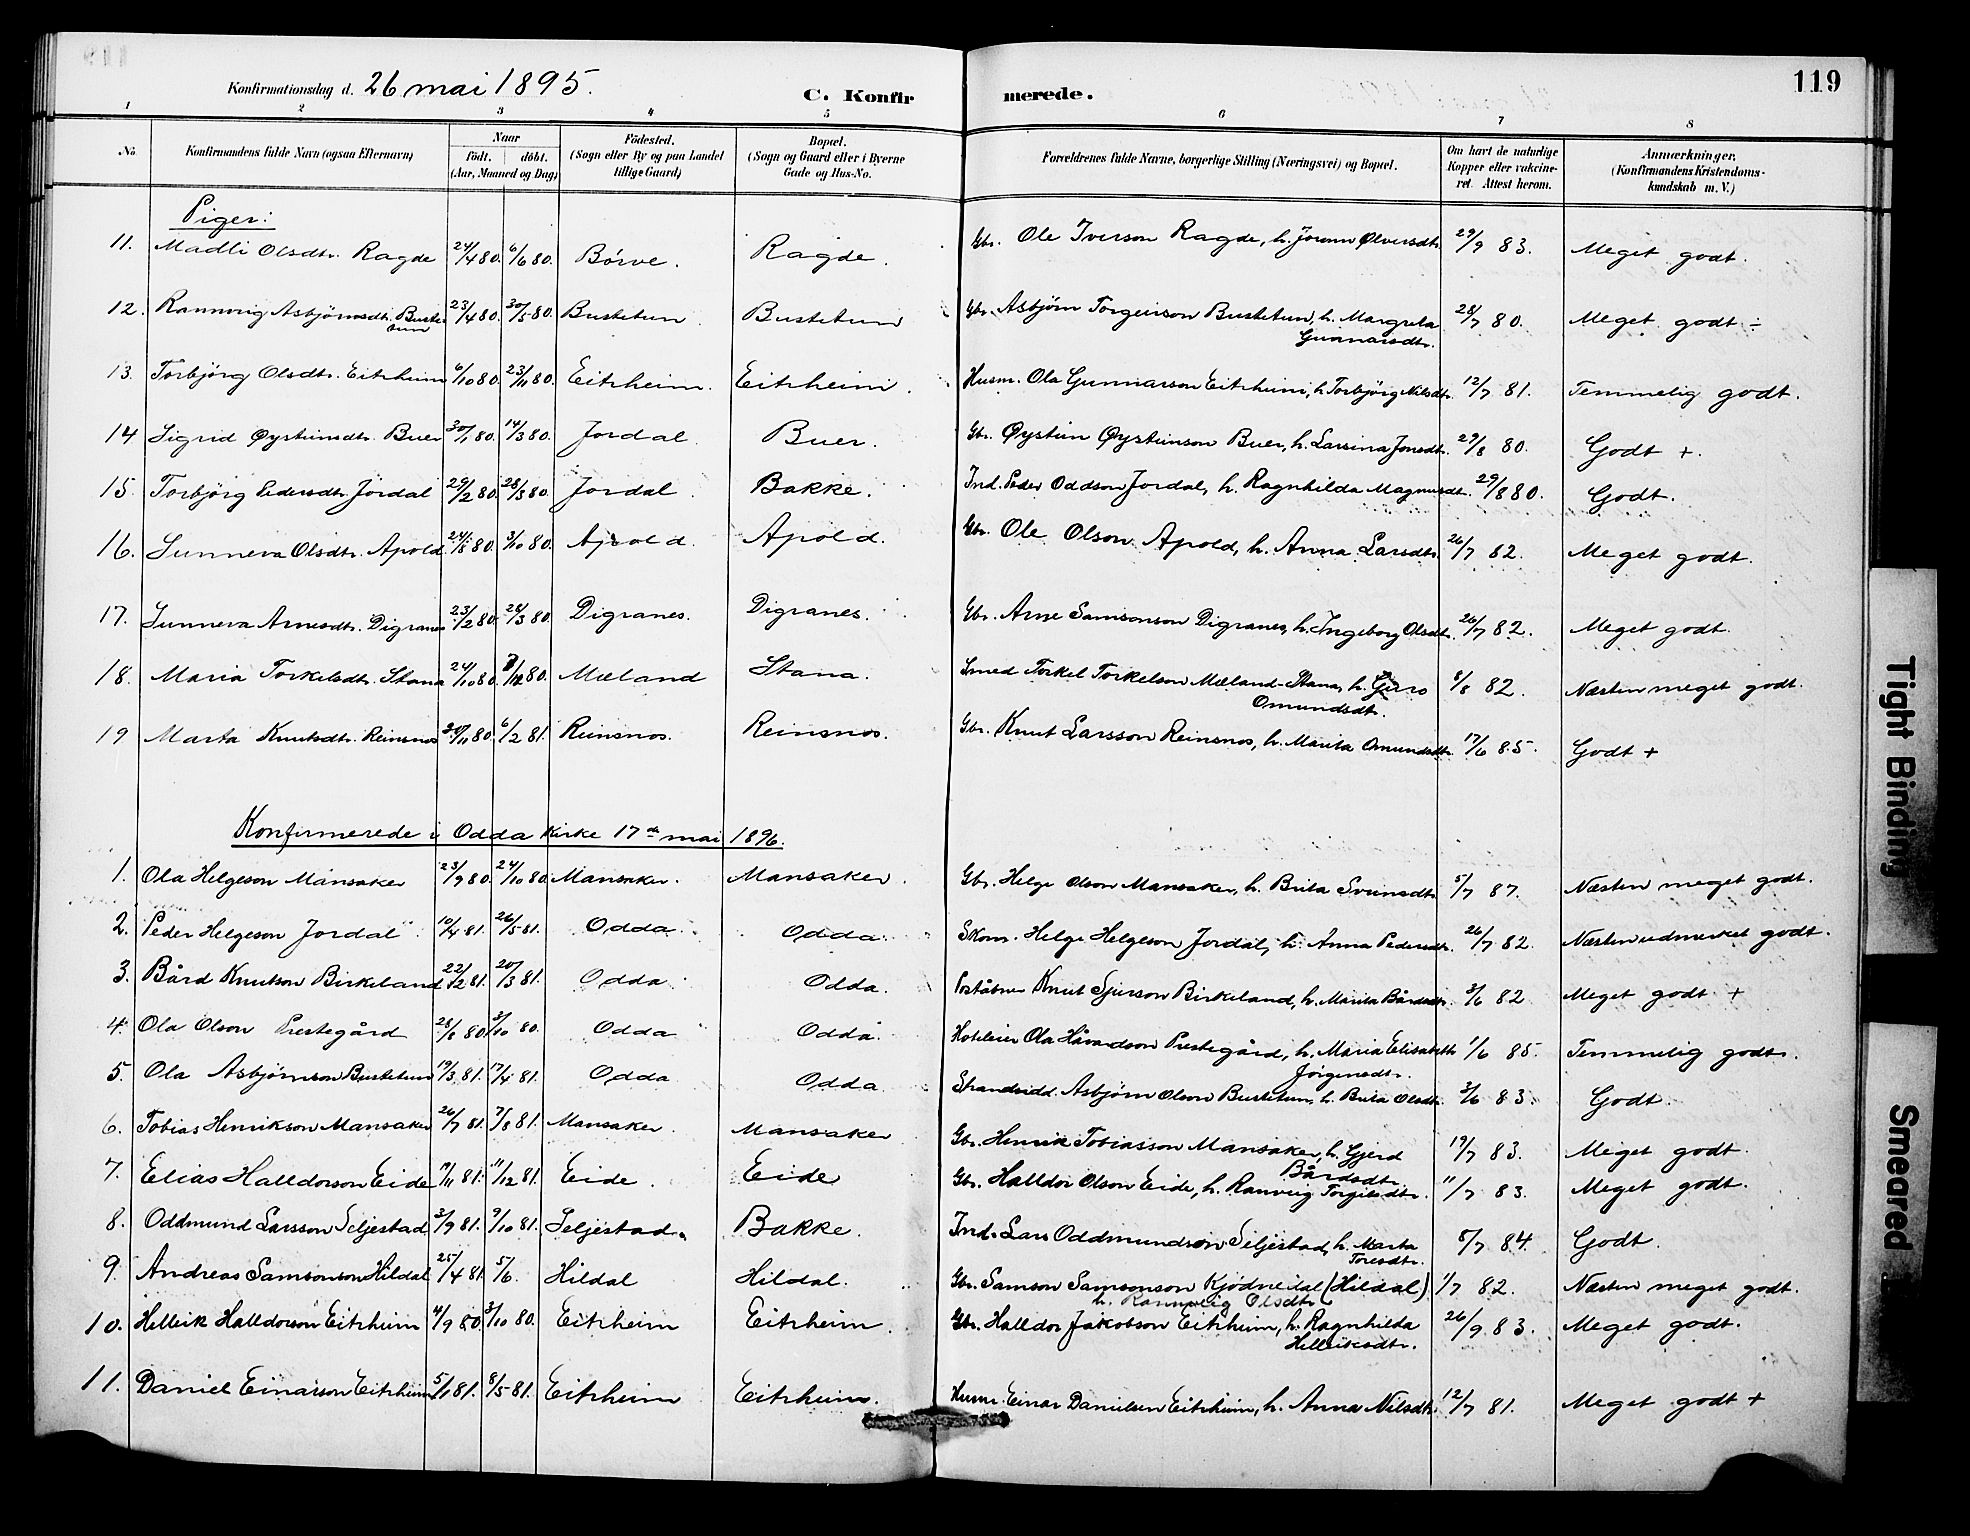 119
Konfirmationsdag d. 26 mai 1895.
C. Konfirmerede.
1 2 3 4 5 6 7 8
No. Konfirmandens fulde Navn (ogsaa Efternavn) Naar födt. döbt. (Aar, Maaned og Dag) Födested. (Sogn eller By og paa Landet tillige Gaard) Bopæl. (Sogn og Gaard eller i Byerne Gade og Hus-No. Forældrenes fulde Navne, borgerlige Stilling (Næringsvei) og Bopæl. Om havt de naturlige Kopper eller vakcineret. Attest herom. Anmærkninger. (Konfirmandens Kristendomskundskab m. V.)
Piger:
11. Madli Olsdtr. Ragde 24/4 80. 6/6 80. Börve. Ragde. Gbr. Ole Iverson Ragde, h. Jorunn Ølversdtr. 29/9 83. Meget godt.
12. Rannveig Asbjörnsdtr. Bustetun 23/4 80. 30/5 80. Bustetun Bustetun Gbr. Asbjörn Torgeirson Bustetun, h. Margreta Gunnarsdtr. 28/7 80. Meget godt ÷
13. Torbjörg Olsdtr. Eitrheim 6/10 80. 23/11 80. Eitrheim. Eitrheim. Husm. Ola Gunnarson Eitrheim, h. Torbjörg Nilsdtr. 12/7 81. Temmelig godt.
14 Sigrid Øysteinsdtr. Buer 30/1 80. 14/3 80. Jordal Buer. Gbr. Øystein Øysteinson Buer, h. Larsina Jonsdtr. 29/8 80. Godt +.
15. Torbjörg Pedersdtr. Jordal 29/2 80. 28/3 80. Jordal. Bakke. Ind. Peder Oddson Jordal, h. Ragnhilda Magnusdtr. 29/8 80. Godt.
16. Sunneva Olsdtr. Apold 24/8 80. 3/10 80. Apold. Apold. Gbr. Ole Olson Apold, h. Anna Larsdtr. 26/7 82. Meget godt.
17. Sunneva Arnesdtr. Digranes 23/2 80. 28/3 80. Digranes. Digranes. Gbr. Arne Samsonson Digranes, h. Ingeborg Olsdtr. 26/7 82. Meget godt.
18. Maria Torkelsdtr. Stana 24/10 80. 7/12 80. Mæland Stana. Smed Torkel Torkelson Mæland-Stana, h. Guro Omundsdtr. 8/8 82. Næsten meget godt.
19 Marta Knutsdtr. Reinsnos 24/11 80. 6/2 81. Reinsnos. Reinsnos. Gbr. Knut Larsson Reinsnos, h. Marita Omundsdtr. 17/6 85. Godt +
Konfirmerede i Odda kirke 17de mai 1896.
1. Ola Helgeson Månsaker 23/9 80. 24/10 80. Mansaker. Mansaker. Gbr. Helge Olson Mansaker, h. Brita Sveinsdtr. 5/7 87. Næsten meget godt.
2. Peder Helgeson Jordal 10/4 81. 26/5 81. Odda. Odda. Skom. Helge Helgeson Jordal, h. Anna Pedersdtr. 26/7 82. Næsten udmerket godt.
3. Bård Knutson Birkeland 22/2 81. 20/3 81. Odda. Odda. Poståbner Knut Sjurson Birkeland, h. Marita Bårdsdtr. 3/6 82 Meget godt +
4. Ola Olson Prestegård 28/8 80. 3/10 80. Odda Odda. Hoteleier Ola Håvardson Prestegård, h. Maria Elisabeth Jörgensdtr. 1/6 85. Temmelig godt.
5. Ola Asbjörnson Bustetun 19/3 81. 17/4 81. Odda Odda. Strandsidd. Asbjörn Olson Bustetun, h. Brita Olsdtr. 3/6 83. Godt.
6. Tobias Henrikson Mansaker 26/7 81. 7/8 81. Mansaker. Mansaker Gbr. Henrik Tobiasson Mansaker, h. Gjerd Bårdsdtr. 19/7 83. Meget godt.
7. Elias Halldorson Eide 19/11 81. 11/12 81. Eide. Eide Gbr. Halldor Olson Eide, h. Ranveig Torgilsdtr. 11/7 83. Meget godt.
8. Oddmund Larsson Seljestad 3/9 81. 9/10 81. Seljestad. Bakke. Ind. Lars Oddmundson Seljestad, h. Marta Toresdtr. 5/7 84. Godt.
9. Andreas Samsonson Hildal 25/4 81. 5/6. Hildal Hildal. Gbr. Samson Samsonson Kjødnedal (Hildal) h. Rannveig Olsdtr. 1/7 82. Næsten meget godt.
10. Helleik Halldorson Eitrheim 4/9 80. 3/10 80. Eitrheim Eitrheim. Gbr. Halldor Jakobson Eitrheim, h. Ragnhilda Helleiksdtr. 26/9 83. Meget godt.
11. Daniel Einarson Eitrheim 5/1 81. 8/5 81. Eitrheim Eitrheim. Husm. Einar Danielsen Eitrheim, h. Anna Nilsdtr. 12/7 81. Meget godt +
Tight Binding
Smeared